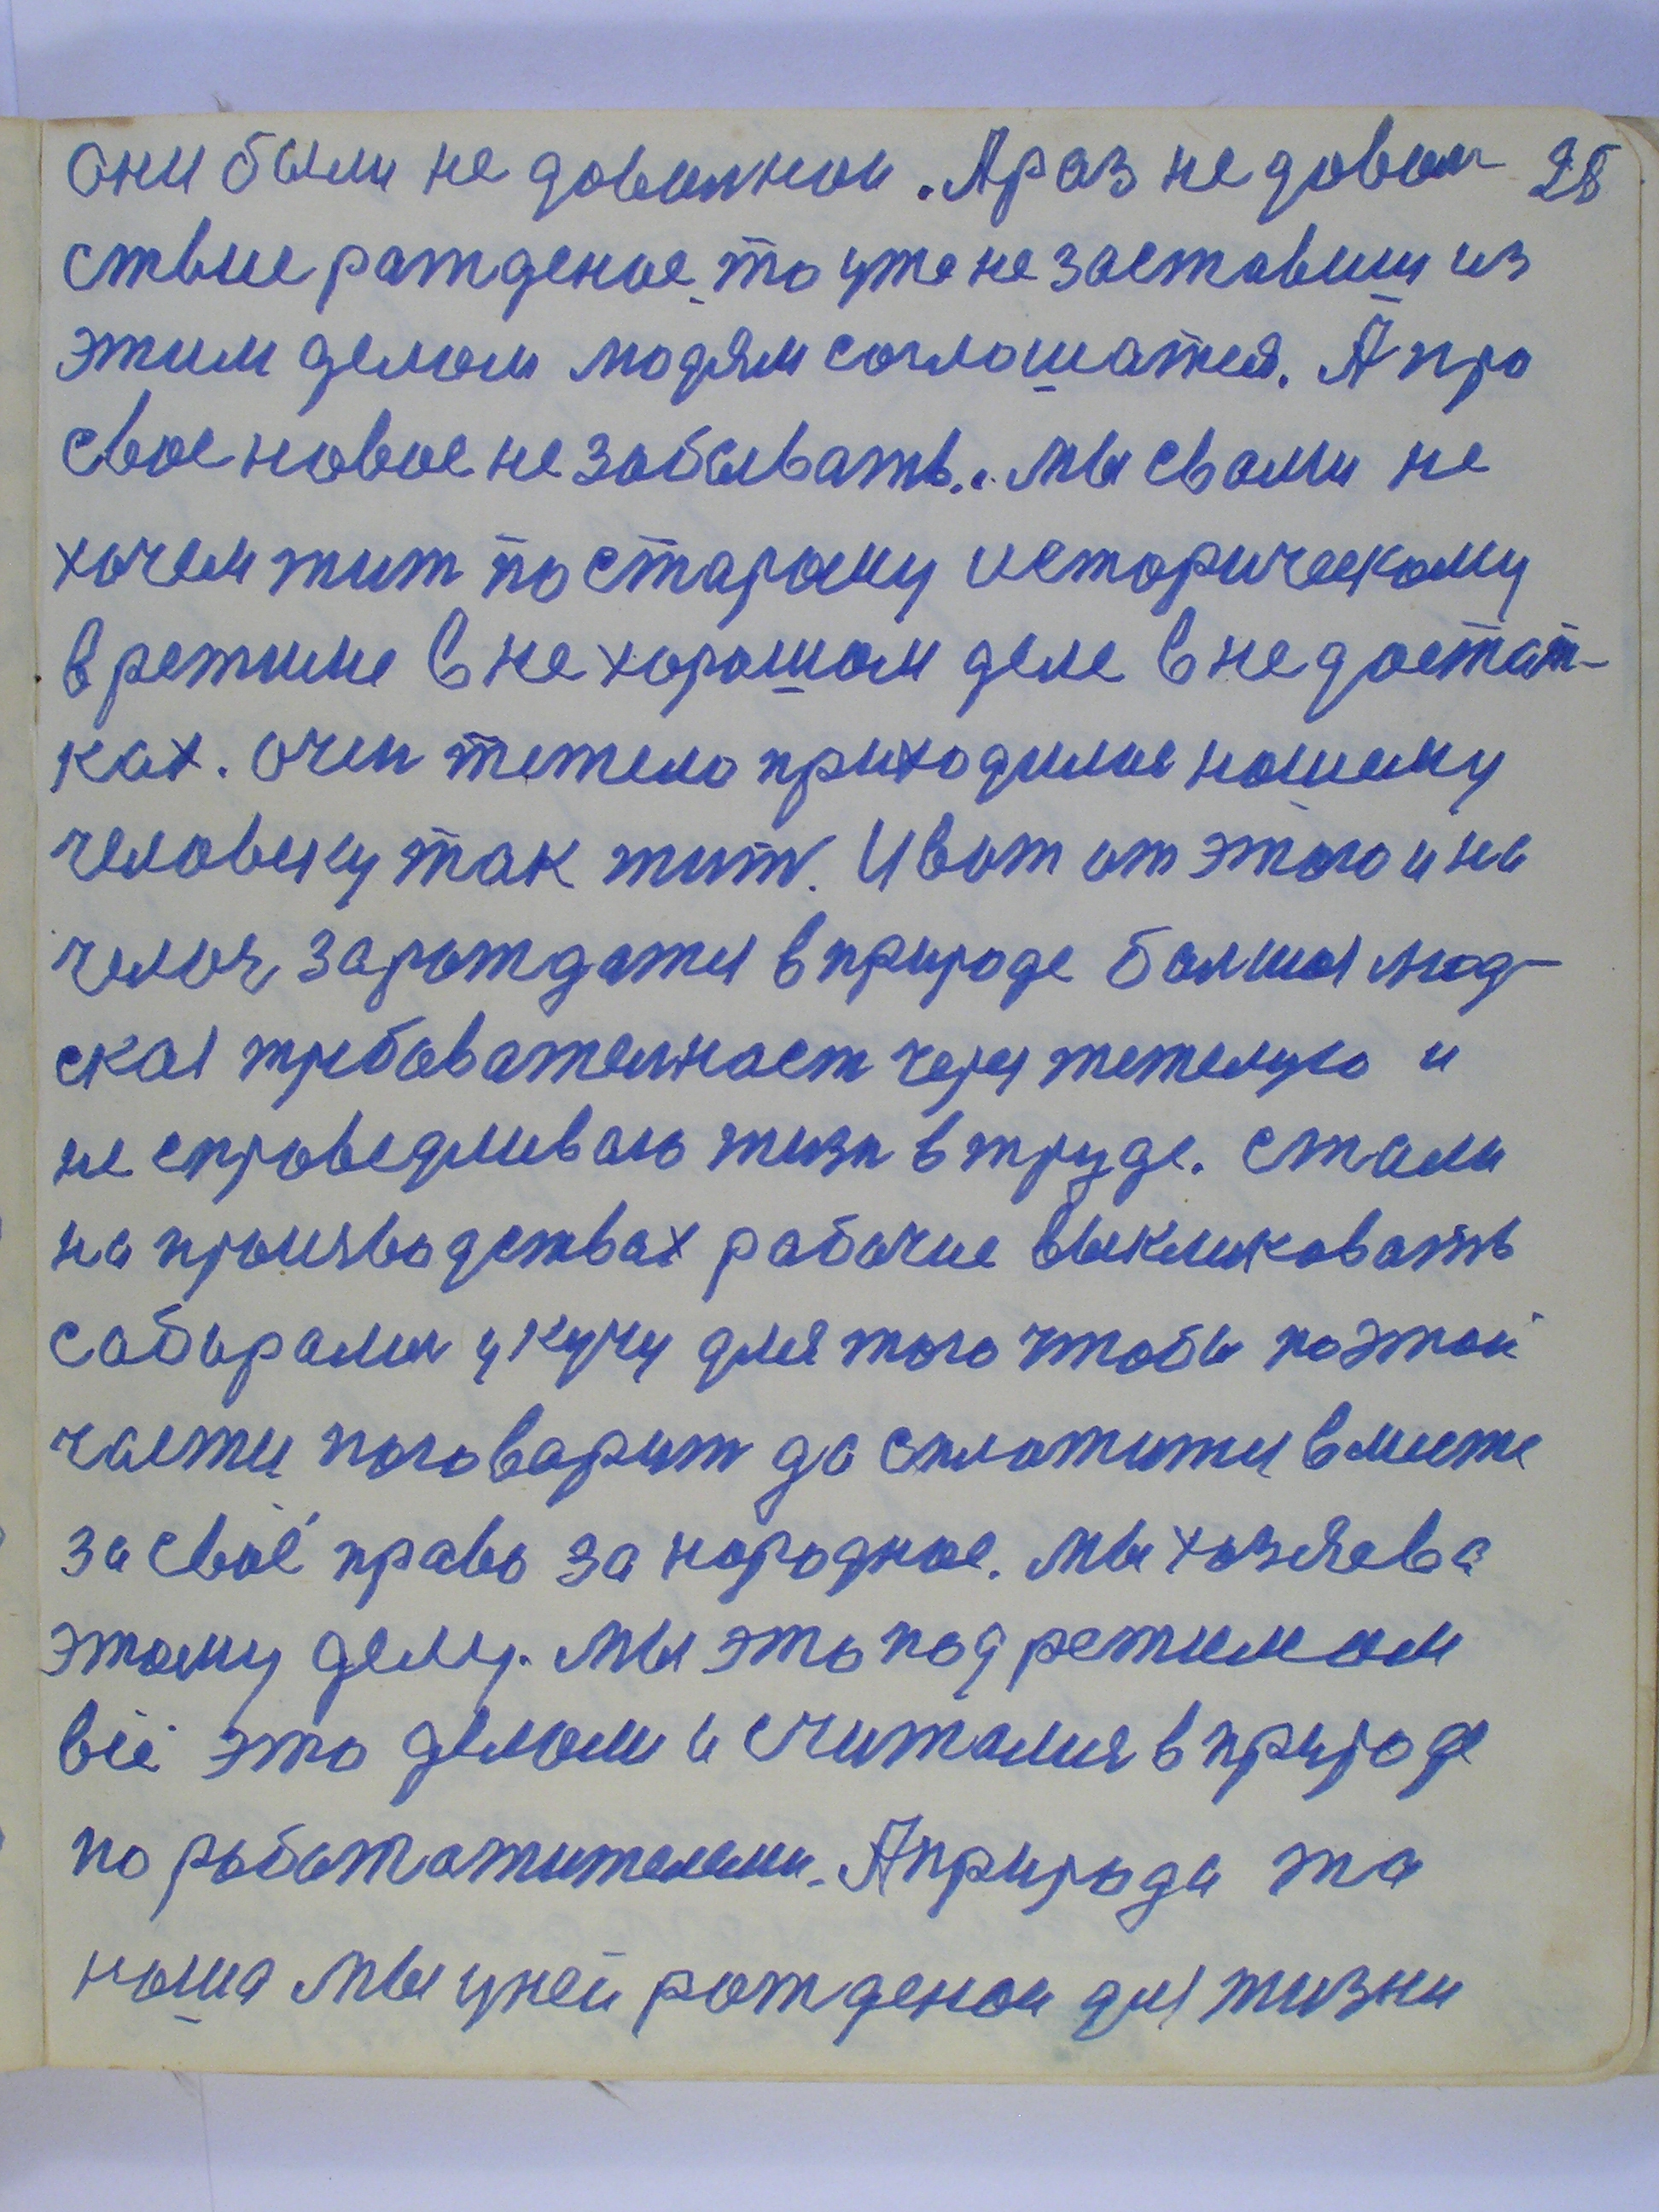 они были не доволнои. А раз не довол- 28
ствие раждёное то уже не заставиш из
этим делом людям соглошатся. А про
свое новое не забывать. Мы свами не
хочем жит по старому историческому
в режиме в не хорошом деле в не достат-
ках. Очен тежело приходилос нашему
человеку так жит. И вот от этого и на
чалося зарождатся в природе болшая люд-
ская требователност через тежелую и
не справедливаю жизн в труде. Стали
на производствах рабочие выкликовать
сабиралися у кучу для того чтобы по этой
части поговарит да сплотится вместе
за своё право за народное. Мы хозяева
этому делу. Мы это под режимом
всё это делали и считалися в природе
по работатителями. А природа та
наша мы у ней рождёнои для жизни